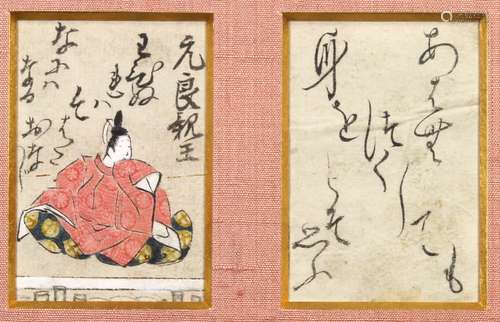 元良親王
わひぬ
れは
はた
おな
なには
なる
身を
つく
しても
あはむ
とそ
思ふ